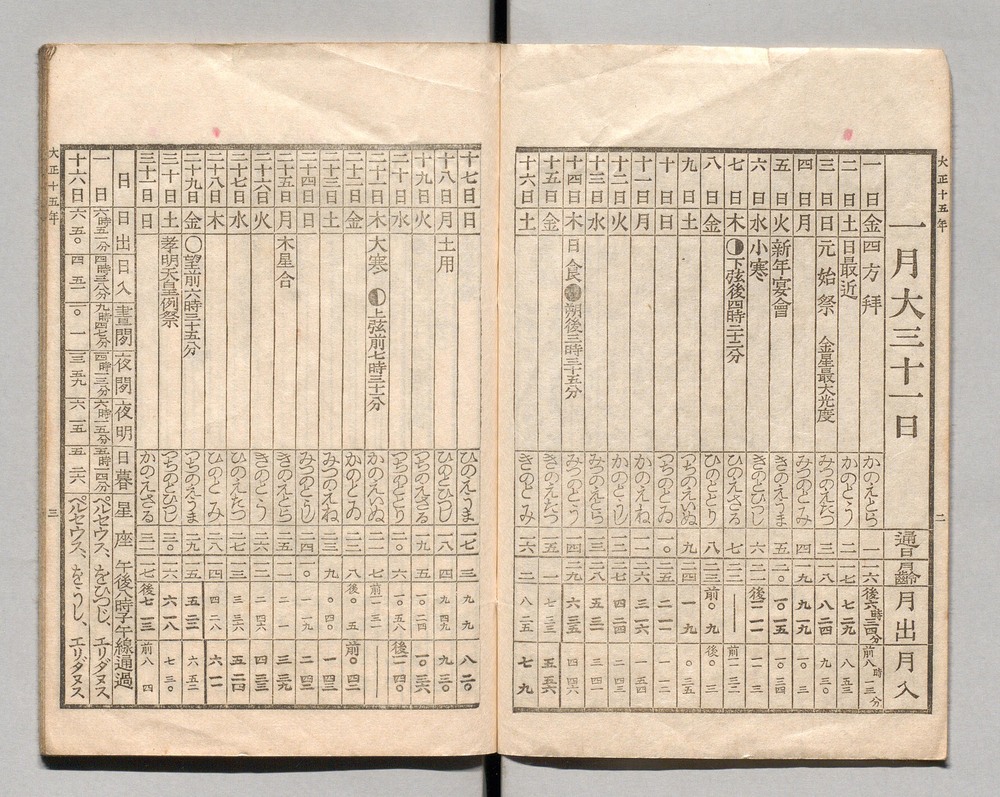 大正十五年
二
一月大三十一日 通日 月齡 月出 月入
一日 金 四方拜 かのえとら 一 一六 後六時三四分 前八時一三分
二日 土 日最近 かのとう 二 一七 七 二九 八 五三
三日 日 元始祭 金星最大光度 みづのえたつ 三 一八 八 二四 九 三〇
四日 月 みづのとみ 四 一九 九 一九 一〇 三
五日 火 新年宴會 きのえうま 五 二〇 一〇 一五 一〇 三四
六日 水 小寒 きのとひつじ 六 二一 後一一 一二 一一 三
七日 木 下弦後四時二十二分 ひのえさる 七 二二 ― 前一一 三二
八日 金 ひのととり 八 二三 前〇 九 後〇 三
九日 土 つちのえいぬ 九 二四 一 九 〇 三五
十日 日 つちのとゐ 一〇 二五 二 一二 一 一二
十一日 月 かのえね 一一 二六 三 一六 一 五四
十二日 火 かのとうし 一二 二七 四 二四 二 四三
十三日 水 みづのえとら 一三 二八 五 三一 三 四一
十四日 木 日食 朔後三時三十五分 みづのとう 一四 二九 六 三五 四 四六
十五日 金 きのえたつ 一五 一 七 三三 五 五六
十六日 土 きのとみ 一六 二 八 二五 七 九
十七日 日 ひのえうま 一七 三 九 九 八 二〇
十八日 月 土用 ひのとひつじ 一八 四 九 四九 九 三〇
十九日 火 つちのえさる 一九 五 一〇 二四 一〇 三六
二十日 水 つちのととり 二〇 六 一〇 五八 後一一 四〇
二十一日 木 大寒 上弦前七時三十一分 かのえいぬ 二一 七 前一一 三一 ―
二十二日 金 かのとゐ 二二 八 後〇 五 前〇 四二
二十三日 土 みづのえね 二三 九 〇 四〇 一 四三
二十四日 日 みづのとうし 二四 一〇 一 一九 二 四三
二十五日 月 木星合 きのえとら 二五 一一 二 一 三 三九
二十六日 火 きのとう 二六 一二 二 四六 四 三三
二十七日 水 ひのえたつ 二七 一三 三 三六 五 二四
二十八日 木 ひのとみ 二八 一四 四 二八 六 一一
二十九日 金 〇望前六時三十五分 つちのえうま 二九 一五 五 二二 六 五二
三十日 土 孝明天皇例祭 つちのとひつじ 三〇 一六 六 一八 七 三〇
三十一日 日 かのえさる 三一 一七 後七 一三 前八 四
日 日出 日入 晝間 夜間 夜明 日暮 星座 午後八時子午線通過
一日 六時五一分 四時三八分 九時四七分 一四時一三分 六時一五分 五時一四分 ペルセウス、をひつじ、エリダヌス
十六日 六 五〇 四 五一 一〇 一 一三 五九 六 一五 五 二六 ペルセウス、をうし、エリダヌス
大正十五年
三